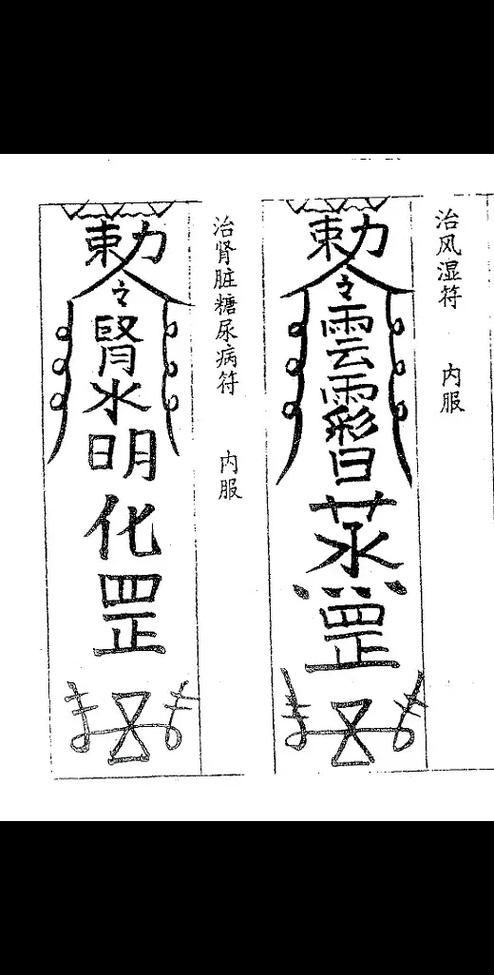 治风湿符 内服
勅令雲日蒸罡
治肾脏糖尿病符 内服
勅令腎水明化罡